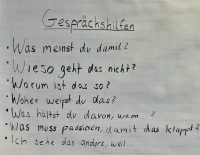 Gesprächshilfen
• Was meinst du damit?
• Wieso geht das nicht?
• Warum ist das so?
• Woher weißt du das?
• Was hältst du davon, wenn...?
• Was muss passieren, damit das klappt?
• Ich sehe das anders, weil...